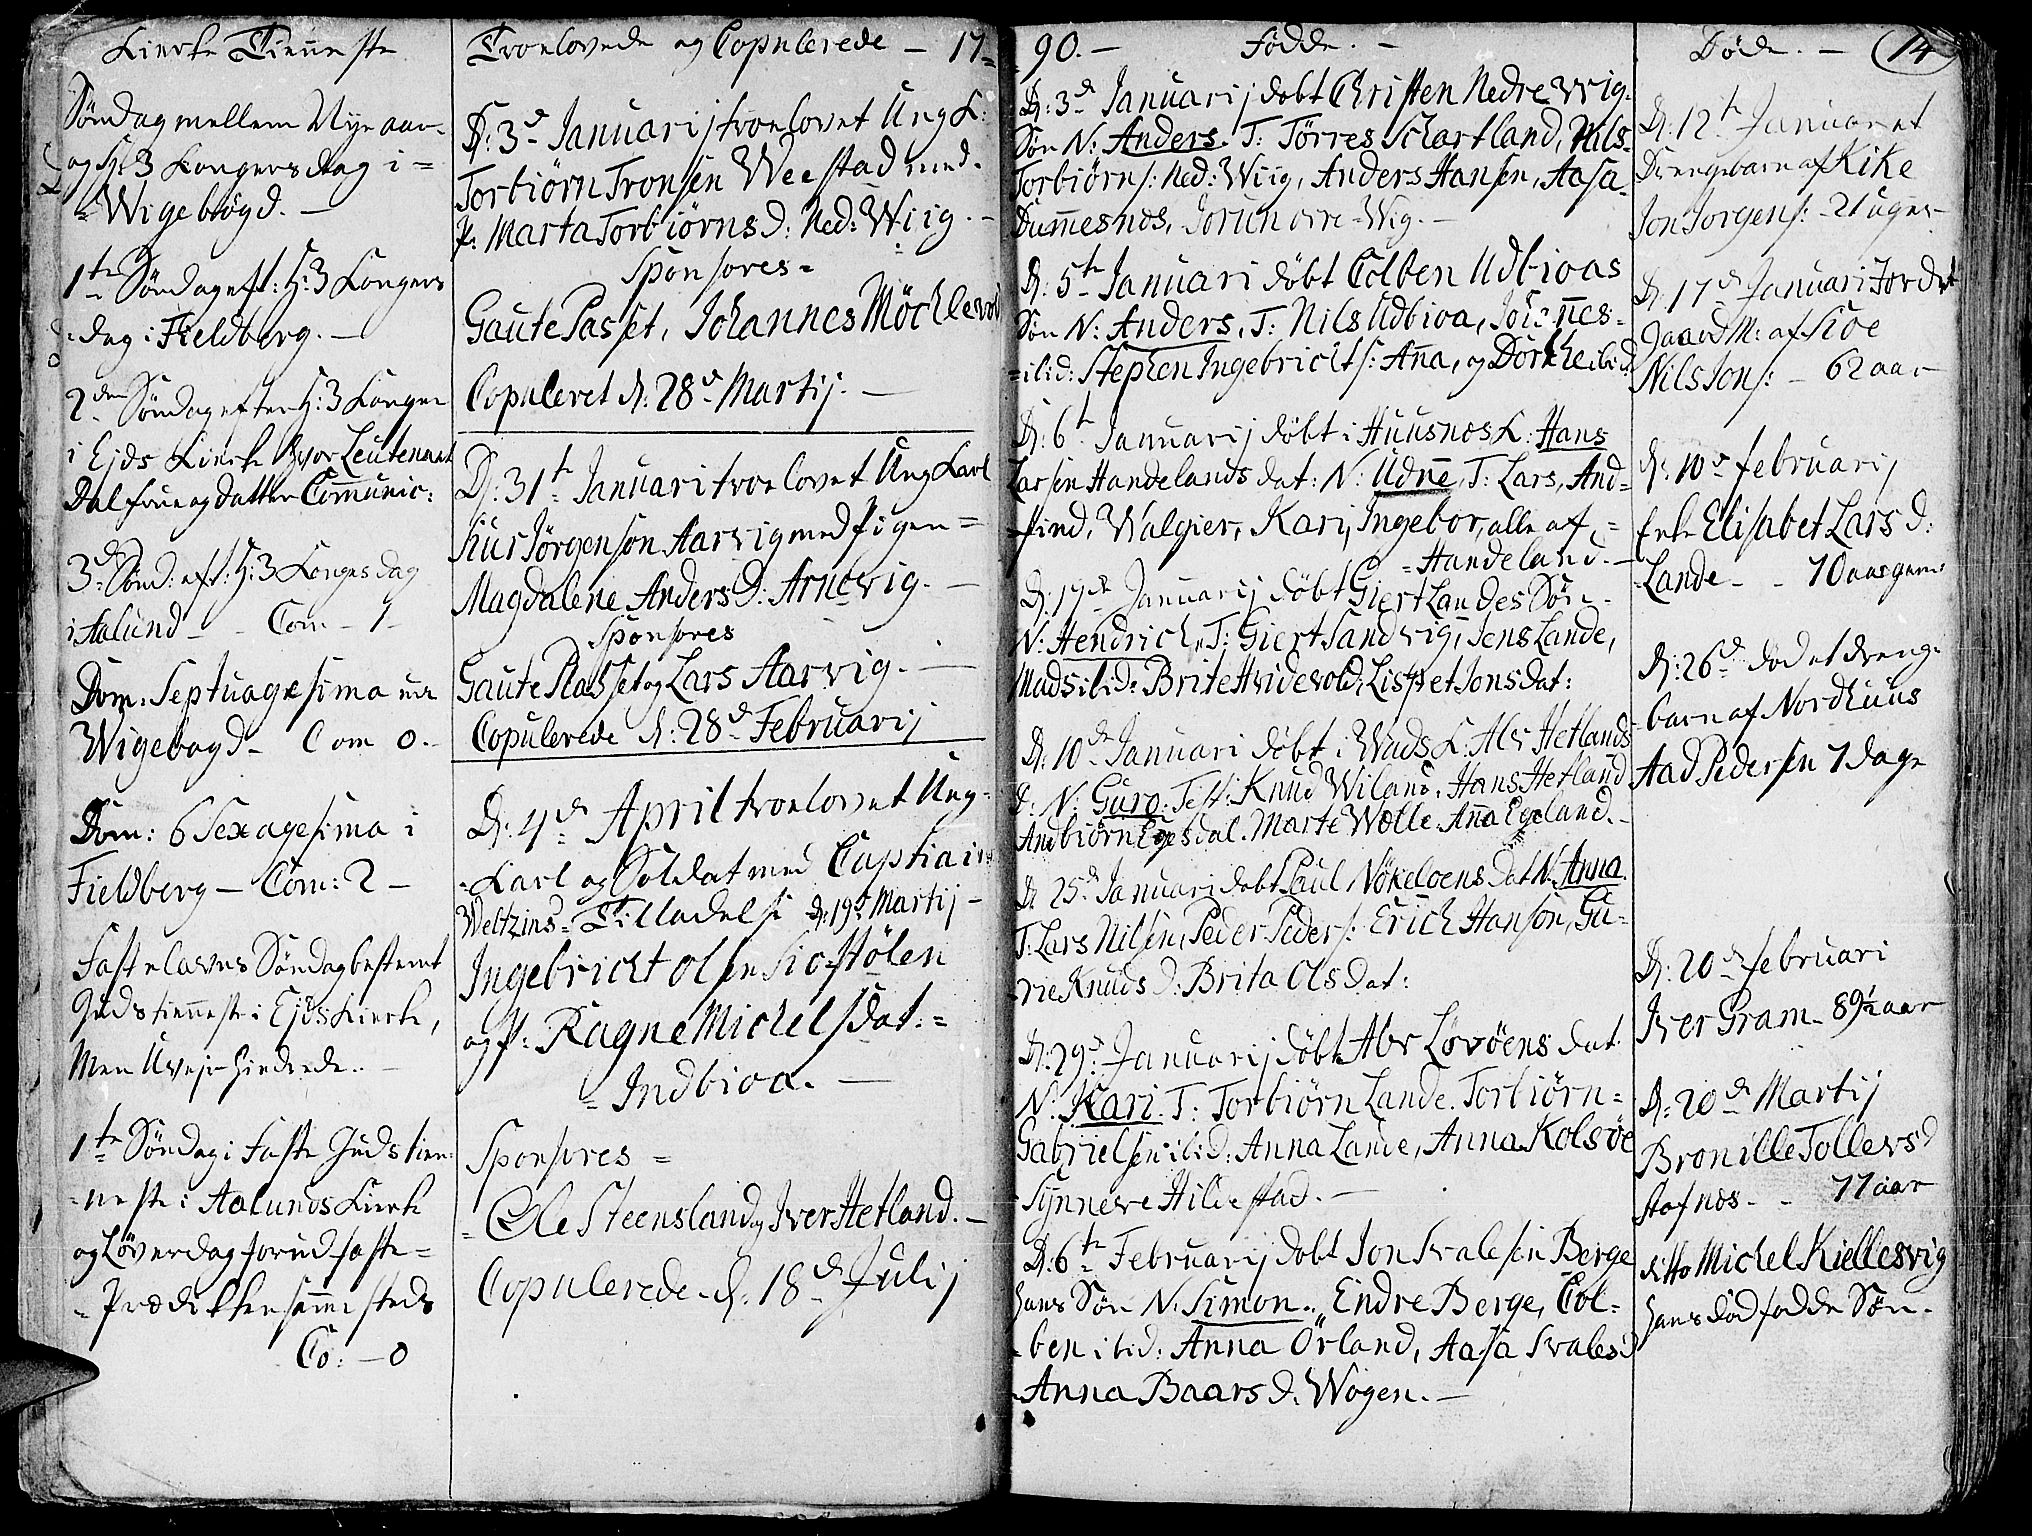 Kierke Tienneste
Søndag mellem Nyeaar
og H: 3 Kongersdag i =
= Wigebøgd. —
1te Søndag eft: H: 3 Kongers
dag i Fieldberg. —
2den Søndag efter H: 3 Konger
i Ejds Kierke hvor Leutenant
Dal frue og datter Com̄unic:
3d Sønd: eft: H: 3 Kongersdag
i Aalund — Com — 1 —
Dom. Septuagesima
Wigebøgd — Com 0. —
Dom: Sexagesima i
Fieldberg — Com: 2 —
Fastelavns Søndag bestemt
Gudstienneste i Ejds Kierke,
Men Uvejr hindrede. —
1te Søndag i Faste Gudstien
= neste i Aalunds Kierke
og Løverdag forud faste =
= Prædikken sammesteds
Co: — 0
Troelovede og Copulerede — 17 =
D: 3d Januarij troelovet Ung K:
Torbiørn Tronsen Weestad med
P: Marta Torbiørns D: Ned: Wiig. —
Sponsores =
Gaute Passet, Johannes Möchlevold
Copuleret d: 28d Martij. —
D: 31te Januari troelovet Ung Karl
Siur Jörgenson Aarvig med Pigen =
Magdalene Anders D: Arnevig. —
Sponsores
Gaute Plasset og Lars Aarvig. —
Copulerede d: 28d Februarij
D: 4de April troelovet Ung
= Karl og Soldat med Captiain
Weltzins = Tilladelse d: 19d Martij —
Ingebricht Olsen Siostølen
og P: Ragne Michelsdat: =
= Indbioa. —
Sponsores =
= Ole Steensland og Iver Hetland. —
Copulerede d: 18de Julij
90. — Födde. —
D: 3d Januarij døbt Christen Nedre Wig
Søn N: Anders. T: Tørres Schartland, Nils
Torbiørns: Ned: Wiig, Anders Hansen, Aasa
Dum̄esnes, Jorun øvre = Wig. —
D: 5te Januari døbt Colben Udbioas
Søn N: Anders, T: Nils Udbioa, Johan̄es =
= ibid: Stephen Ingebrichts: An̄a, og Dorthe ibid:
D: 6te Januarij døbt i Huusnes K: Hans
Larsen Handelands dat: N: Udn̄e, T: Lars, And =
= find, Walgier, Kari, Ingebor, alle af =
= Handeland. —
D: 17de Januarij døbt Giert Landes Søn
N: Hendrich, T: Giert Sandvig, Jens Lande,
Mads ibid: Brite Hvidevold, Lisbet Jonsdat:
D: 10de Januari døbt i Wads K: Alv Hetlands
D: N: Guro: Test: Knud Wiland, Hans Hetland
Andbiørn Egesdal. Marte Wolle An̄a Egeland. —
D: 25de Januari døbt Paul Nökeloens Dat N: Anna.
T: Lars Nilsen, Peder Peders: Erich Hanson, Gu =
= rie Knuds D: Brita Olsdat:
D: 29d Januarij døbt Alv Lövöens Dat
N: Kari. T: Torbiørn Lande. Torbiørn =
Gabrielsen ibid: Anna Lande, Anna Kolsöe
Synneve Hildestad. —
D: 6te Februarij døbt Jon Svalesen Berge
hans Søn N: Simon. Endre Berge, Col =
= ben ibid: Anna Örland, Aasa Svalesd
Anna Baars D. Wogen. —
Døde. — 14
D: 12te Januar et
Drengebarn af Kike
Jon Jorgens: 2 Uger
D: 17de Januari Jordet
Gaard M: af Sioe
Nils Jons: — 62 aar
D: 10d Februarij
Enke Elisabet Lars D:
Lande — — 70 aar gam:
D: 26d død et dreng
barn af Nordhuus
Aad Pedersen 7 dage
D: 20de Februari
Iver Gram — 89 1/2 aar
D: 20de Martij
Bronille Tollevsd
Stafnos — — 77 aar
ditto Michel Kiellesvig
hans dødfødde Søn.